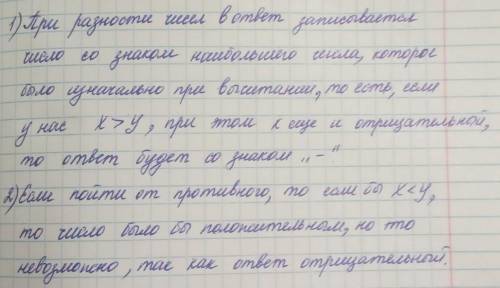 1) При разности чисел в ответ записывается
число со знаком наибольшего числа, которое
было изначально при вычитании, то есть, если
у нас x > y, при этом x еще и отрицательной,
то ответ будет со знаком „–“
2) Если пойти от противного, то если бы x < y,
то число было бы положительным, но это
невозможно, так как ответ отрицательной.